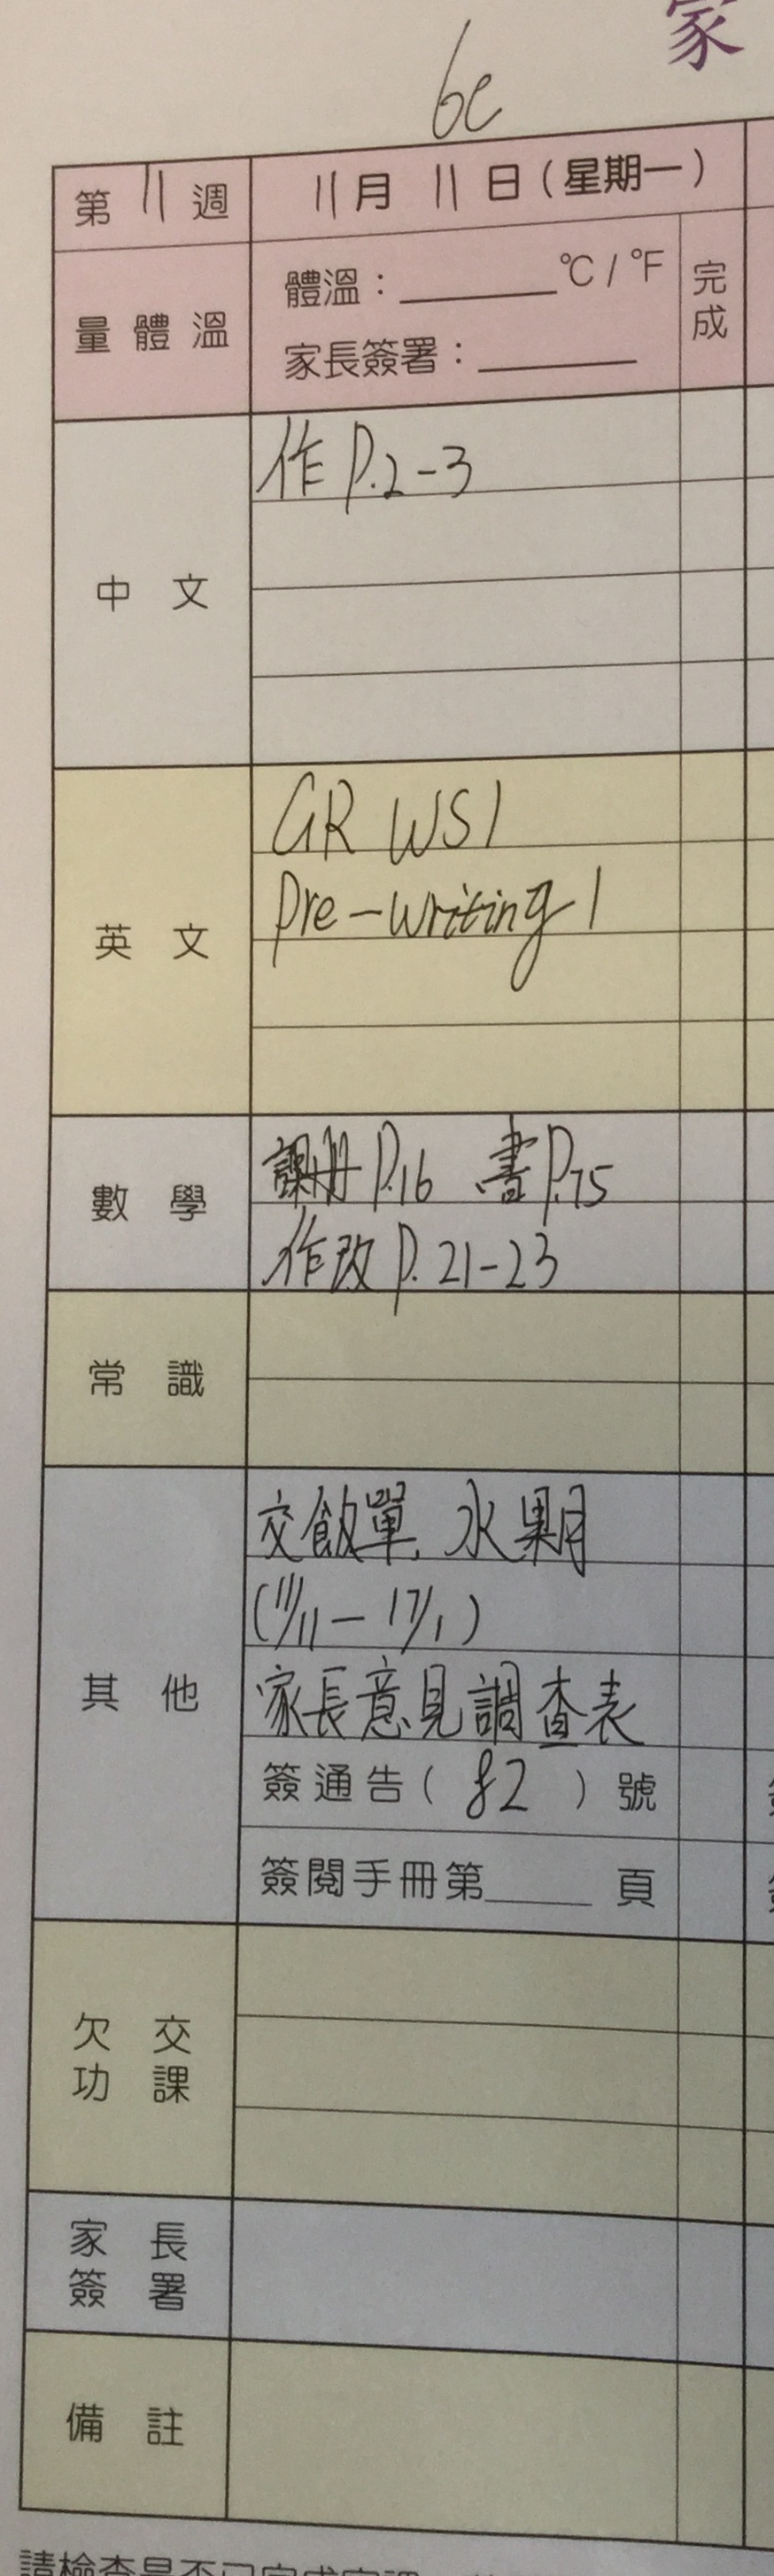 家
6e
第 11 週
11月 11 日(星期一)
量體溫
體溫：______°C / °F
家長簽署：______
完成
中文
作 P.2-3
英文
GR WS1
Pre-writing 1
數學
P.16 書P.75
作改 P. 21-23
常識
其他
交飯單, 水果
(11/11 - 17/1)
家長意見調查表
簽通告( 82 ) 號
簽閱手冊第____ 頁
欠交功課
家長簽署
備註